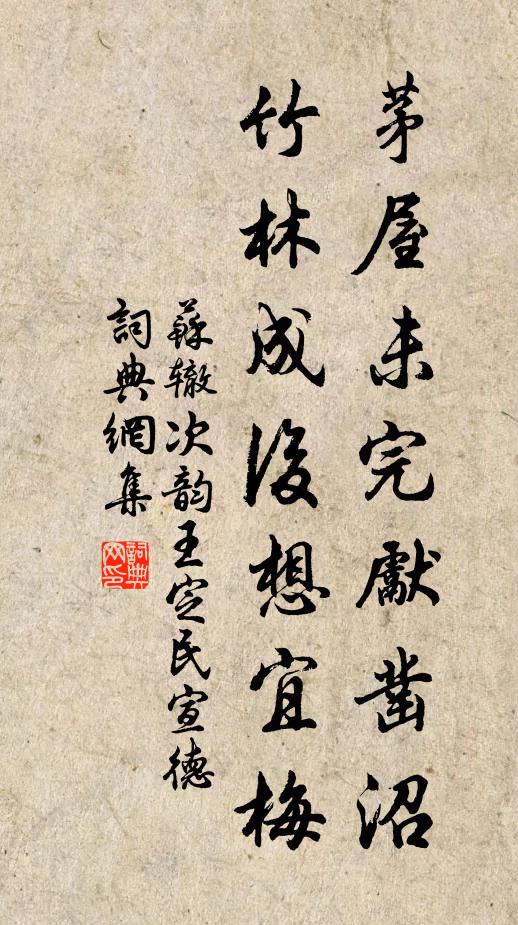 茅屋未完獻凿沼
竹林成後想宜梅
蘇辙次韵王定民宣德
詞典網集
詞典网印